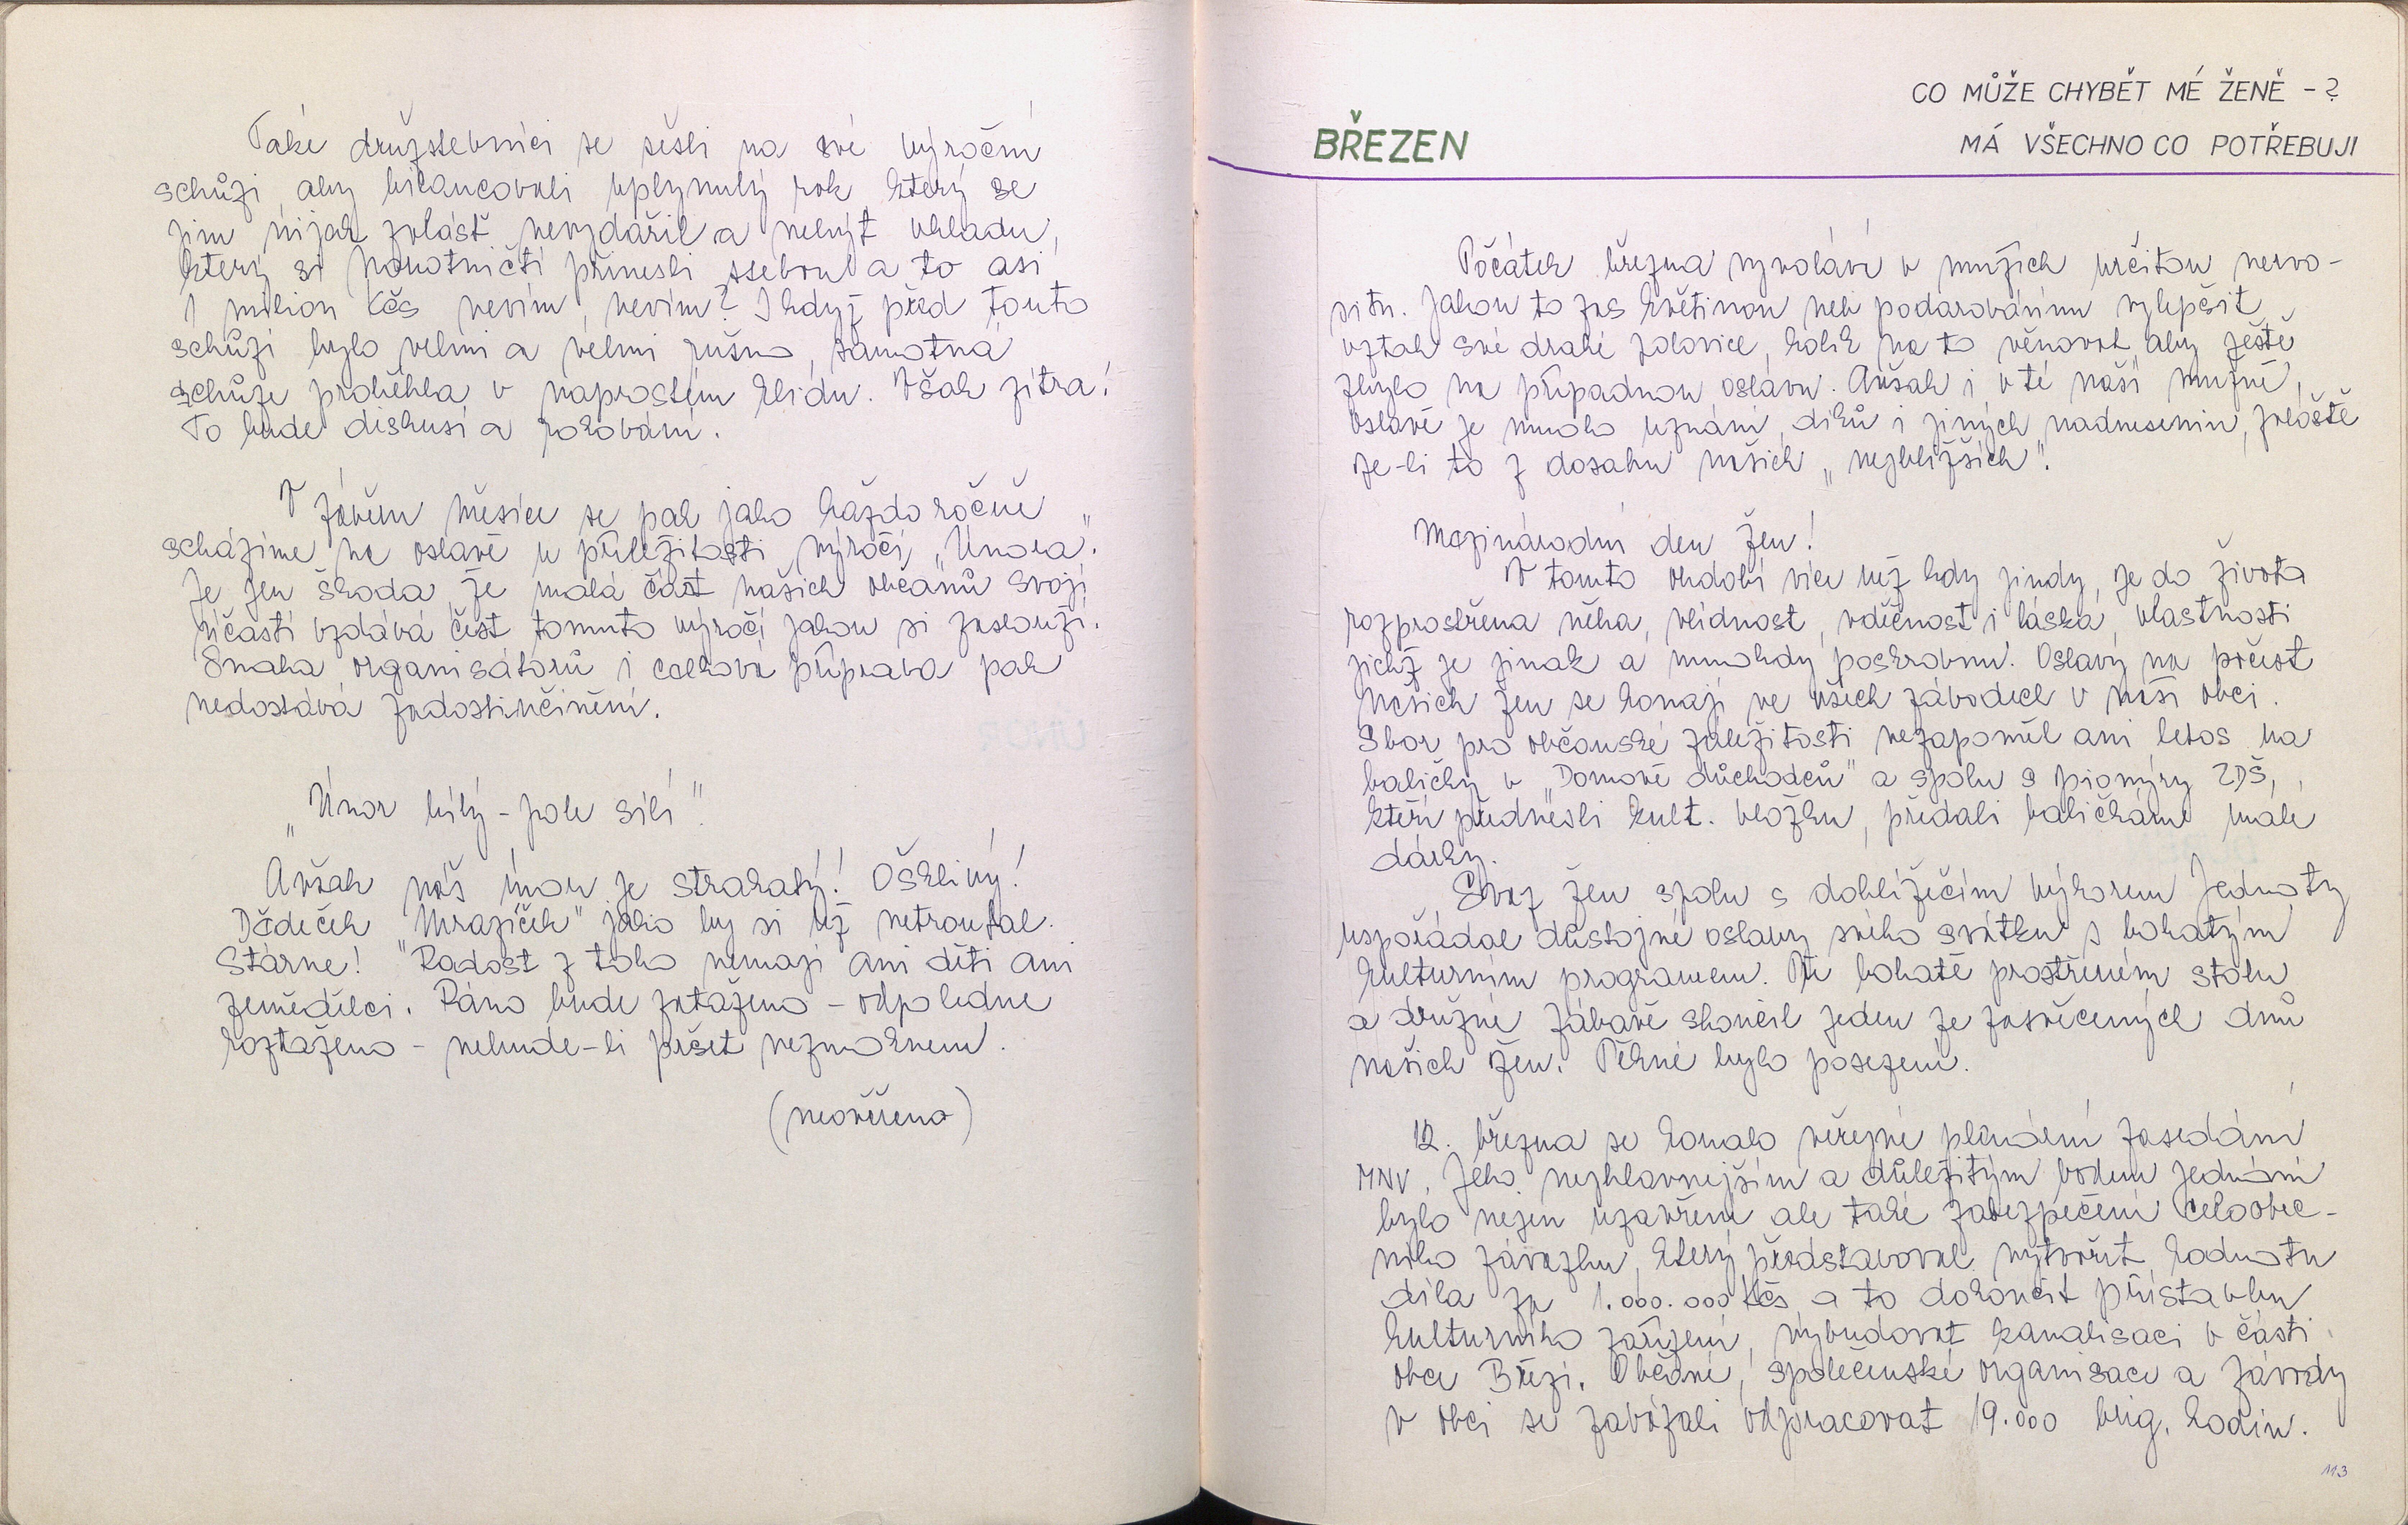 Také družstevníci se sešli na své výroční
schůzi, aby bilancovali uplynulý rok, který se
jim nijak zvlášť nevydařil a nebýt vkladu,
který si Novotničtí přinesli ssebou a to asi
1 milion Kčs nevím, nevím? I když před touto
schůzí bylo velmi a velmi rušno, samotná
schůze proběhla v naprostém klidu. Však zítra!
To bude diskusí a rokování.
V závěru měsíce se pak jako každoročně
scházíme na oslavě u příležitosti výročí „Února".
Je jen škoda, že malá část našich občanů svojí
účastí vzdává čest tomuto výročí jakou si zaslouží.
Snaha organisátorů i celková příprava pak
nedostává zadostiučinění.
„Únor bílý - pole sílí"
Avšak náš únor je strakatý! Ošklivý!
Dědeček "Mrazíček" jako by si už netroufal.
Stárne! Radost z toho nemají ani děti ani
zemědělci. Ráno bude zataženo - odpoledne
roztaženo - nebude-li pršet nezmoknem.
(neověřeno)
CO MŮŽE CHYBĚT MÉ ŽENĚ - ?
BŘEZEN
MÁ VŠECHNO CO POTŘEBUJI
Počátek března vyvolává v mužích určitou nervo-
situ. Jakou to zas květinou neb podarováním vylepšit
vztah své drahé polovice, kolik na to věnovat, aby ještě
zbylo na případnou oslavu. Avšak i v té naší mužné
oslavě je mnoho uznání, díků i jiných nadnesenin, zvláště
je-li to z dosahu našich „nejbližších".
Mezinárodní den žen!
V tomto období více než kdy jindy, je do života
rozprostřena něha, vlídnost, vděčnost i láska, vlastnosti
jichž je jinak a mnohdy poskrovnu. Oslavy na počest
našich žen se konají ve všech závodech v naší obci.
Sbor pro občanské záležitosti nezapoměl ani letos na
babičky v „Domově důchodců" a spolu s pionýry ZDŠ,
kteří přednesli kult. vložku, předali babičkám malé
dárky.
Svaz žen spolu s dohlížečím výborem Jednoty
uspořádal důstojné oslavy svého svátku s bohatým
kulturním programem. Při bohatě prostřeném stolu
a družné zábavě skončil jeden ze zasvěcených dnů
našich žen. Pěkné bylo posezení.
12. března se konalo veřejné plenární zasedání
MNV. Jeho nejhlavnejším a důležitým bodem jednání
bylo nejen uzavření ale také zabezpečení celoobec-
ního závazku, který představoval vytvořit hodnotu
díla za 1.000.000 Kčs a to dokončit přístavbu
kulturního zařízení, vybudovat kanalisaci v části
obce Březí. Občané, společenské organisace a závody
v obci se zavázali odpracovat 19.000 brig. hodin.
113